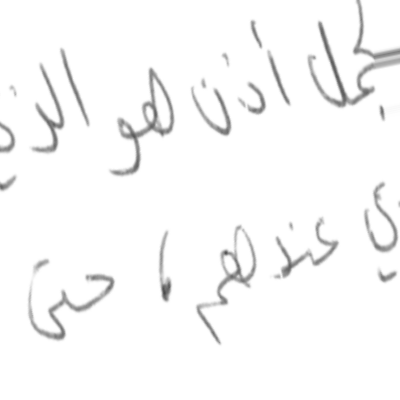 أذن هو الذي
عندهم، حتى